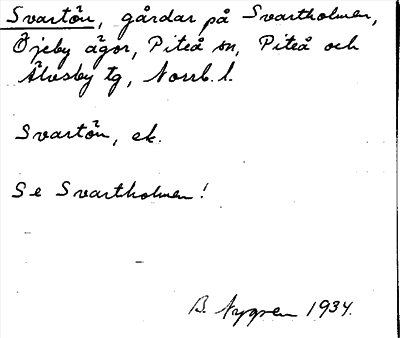 Svartön, gårdar på Svartholmen,
Öjeby ägor, Piteå sn, Piteå och
Älvsby tg, Norrb. l.
Svartön, ek.
Se Svartholmen!
B. Nygren 1934.